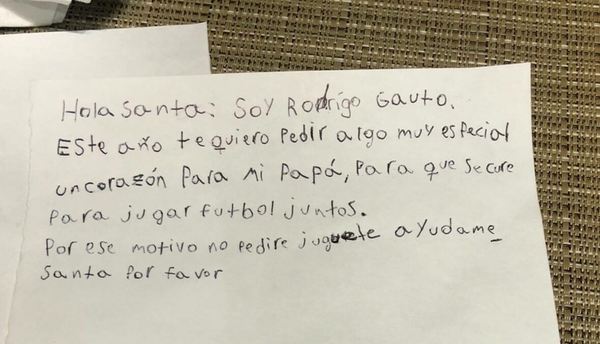 Hola Santa: Soy Rodrigo Gauto.
Este año te quiero pedir algo muy especial
un corazón para mi papá, para que se cure
para jugar futbol juntos.
Por ese motivo no pedire juguete ayudame
Santa por favor